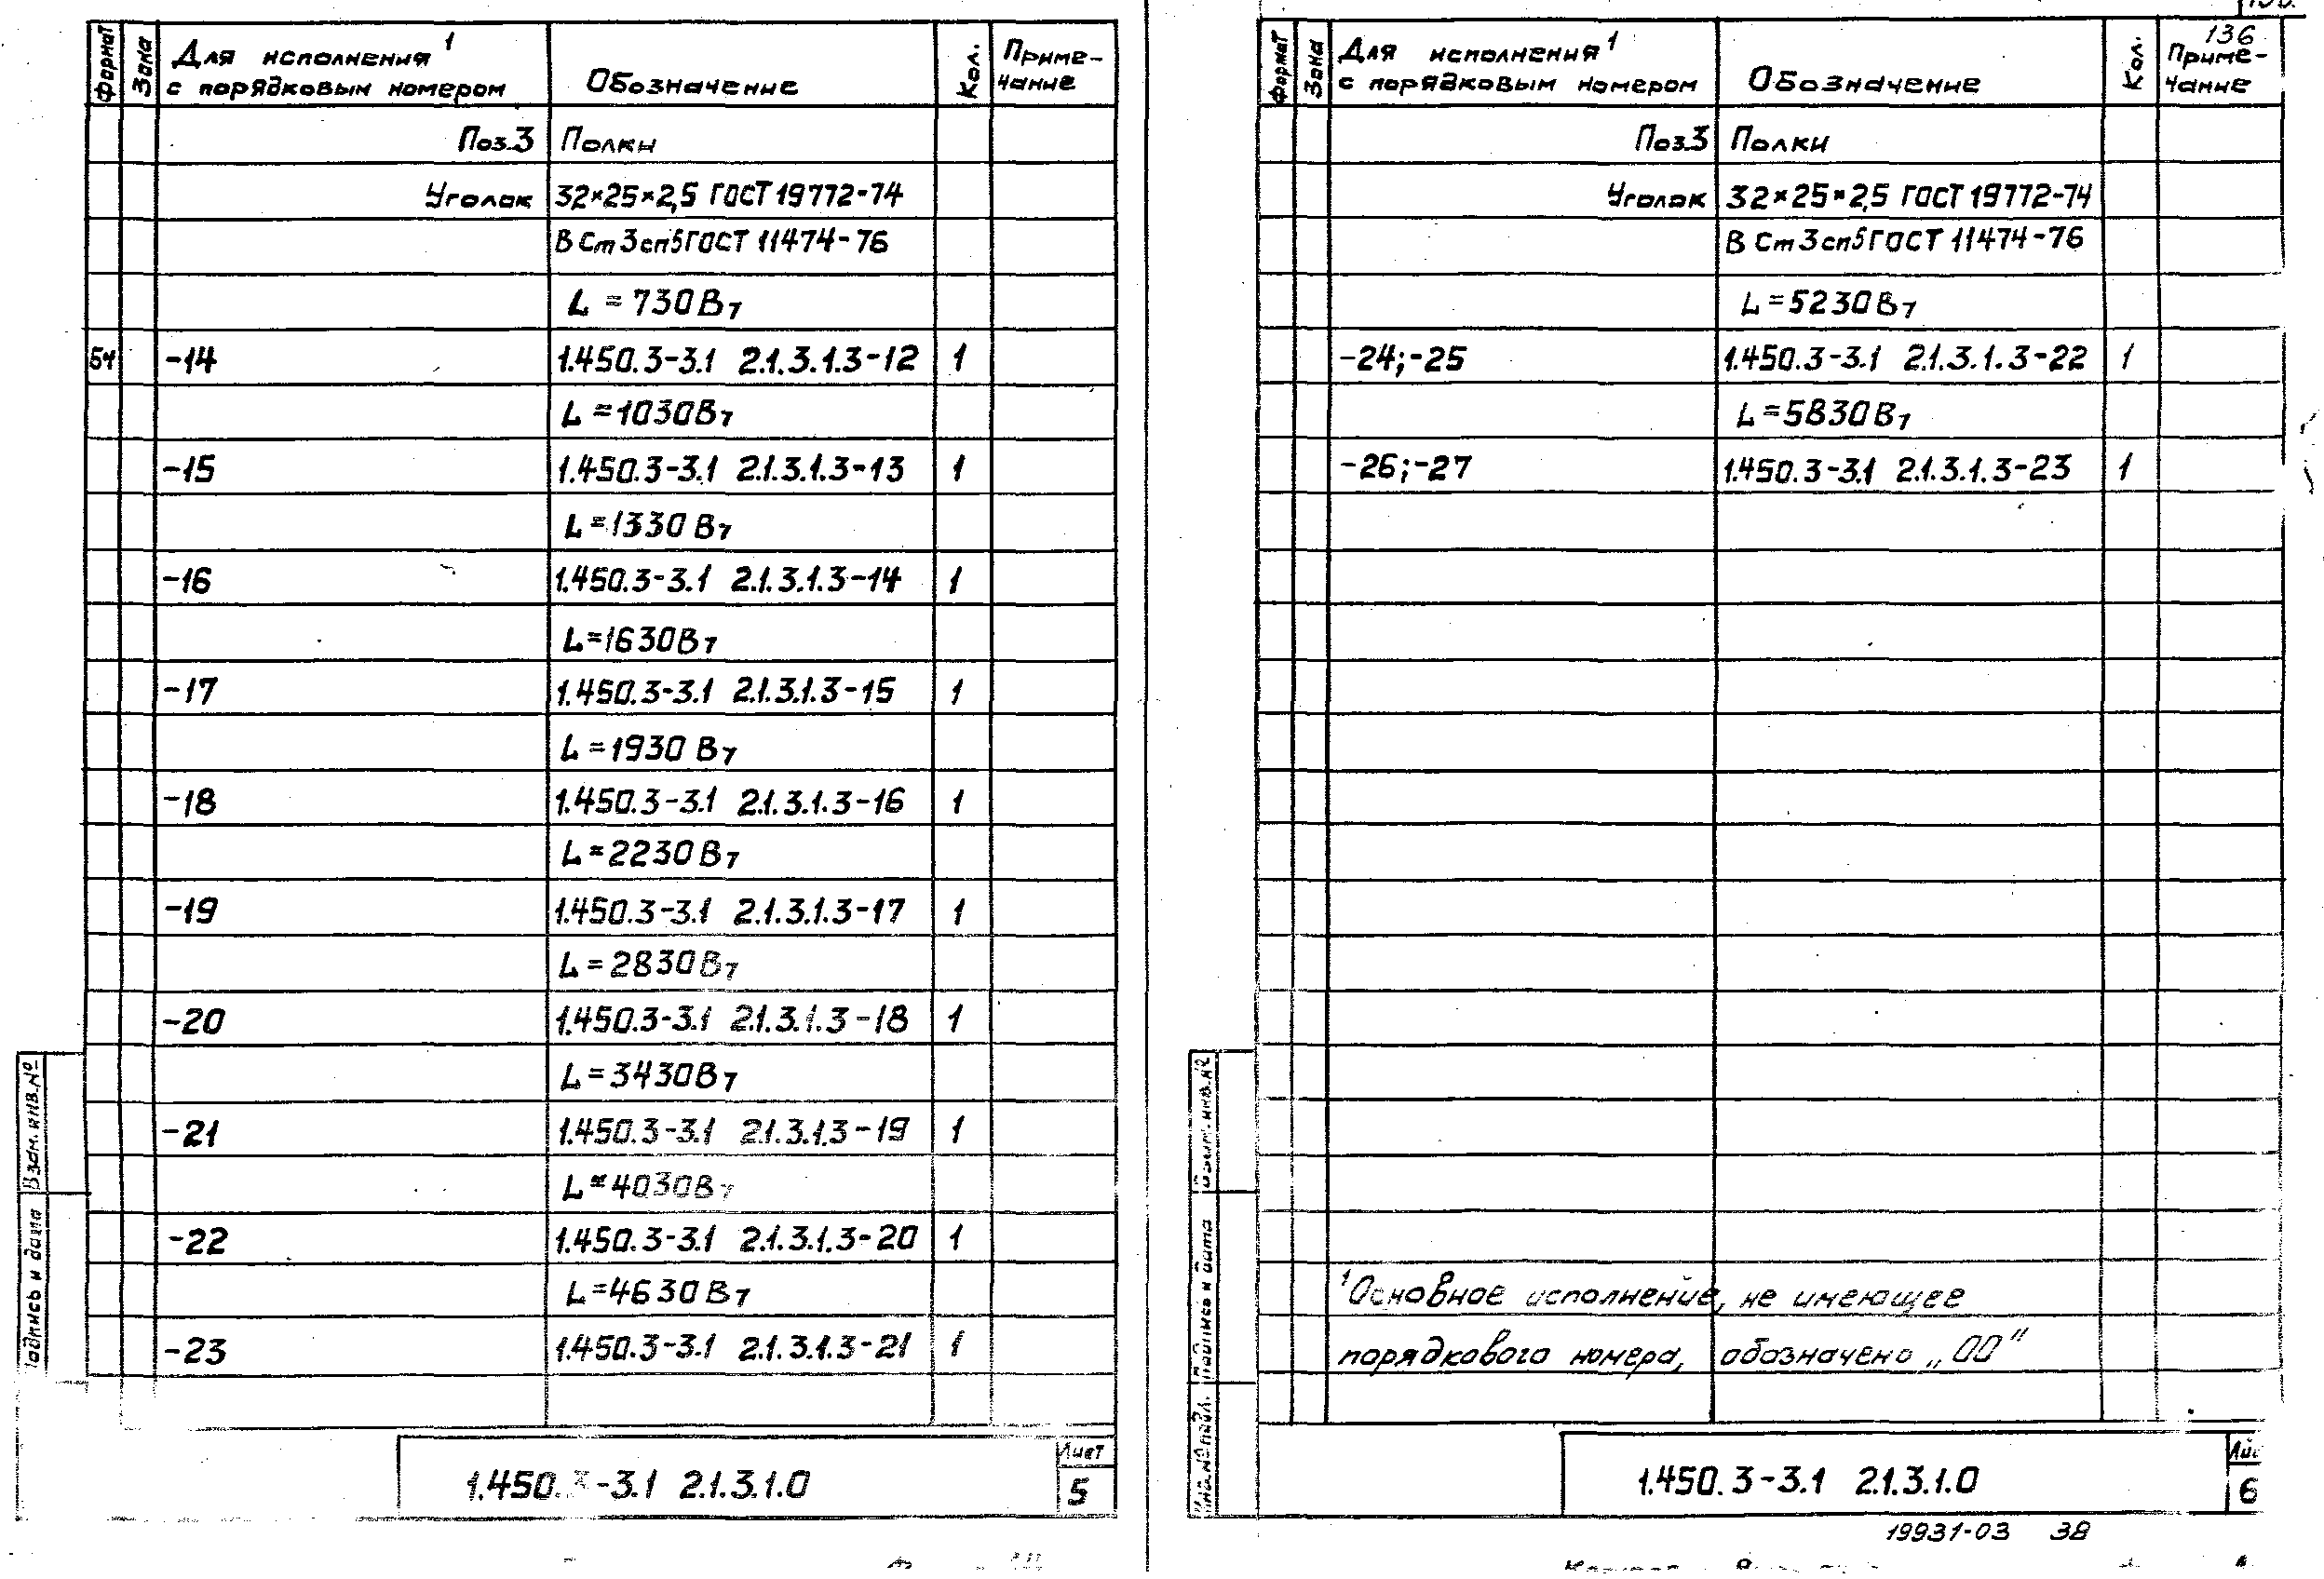 Формат Зона Для исполнения¹ с порядковым номером Обозначение Кол. Примечание
Поз.3 Полки
Уголок 32×25×2,5 ГОСТ 19772-74
В Ст 3сп5 ГОСТ 11474-76
L = 730 В7
БЧ -14 1.450.3-3.1 2.1.3.1.3-12 1
L = 1030 В7
-15 1.450.3-3.1 2.1.3.1.3-13 1
L = 1330 В7
-16 1.450.3-3.1 2.1.3.1.3-14 1
L = 1630 В7
-17 1.450.3-3.1 2.1.3.1.3-15 1
L = 1930 В7
-18 1.450.3-3.1 2.1.3.1.3-16 1
L = 2230 В7
-19 1.450.3-3.1 2.1.3.1.3-17 1
L = 2830 В7
-20 1.450.3-3.1 2.1.3.1.3-18 1
L = 3430 В7
-21 1.450.3-3.1 2.1.3.1.3-19 1
L = 4030 В7
-22 1.450.3-3.1 2.1.3.1.3-20 1
L = 4630 В7
-23 1.450.3-3.1 2.1.3.1.3-21 1
Взам. инв. №
Подпись и дата
1.450.3-3.1 2.1.3.1.0
Лист
5
136
Формат Зона Для исполнения¹ с порядковым номером Обозначение Кол. Примечание
Поз.3 Полки
Уголок 32×25×2,5 ГОСТ 19772-74
В Ст 3сп5 ГОСТ 11474-76
L = 5230 В7
-24; -25 1.450.3-3.1 2.1.3.1.3-22 1
L = 5830 В7
-26; -27 1.450.3-3.1 2.1.3.1.3-23 1
¹Основное исполнение, не имеющее
порядкового номера, обозначено „00"
Взам. инв. №
Подпись и дата
Инв. № подл.
1.450.3-3.1 2.1.3.1.0
Лис
6
19931-03 38